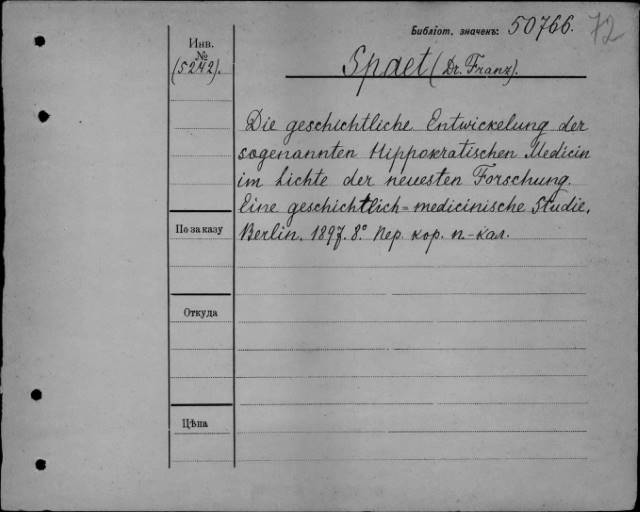 Библіот. значекъ: 50766. 72
Инв.
№
(5242).
Spaet (Dr. Franz).
Die geschichtliche Entwickelung der
sogenannten Hippokratischen Medicin
im Lichte der neuesten Forschung.
Eine geschichtlich=medicinische Studie.
Berlin. 1897. 8.º Пер. кор. п.-кал.
По заказу
Откуда
Цѣна